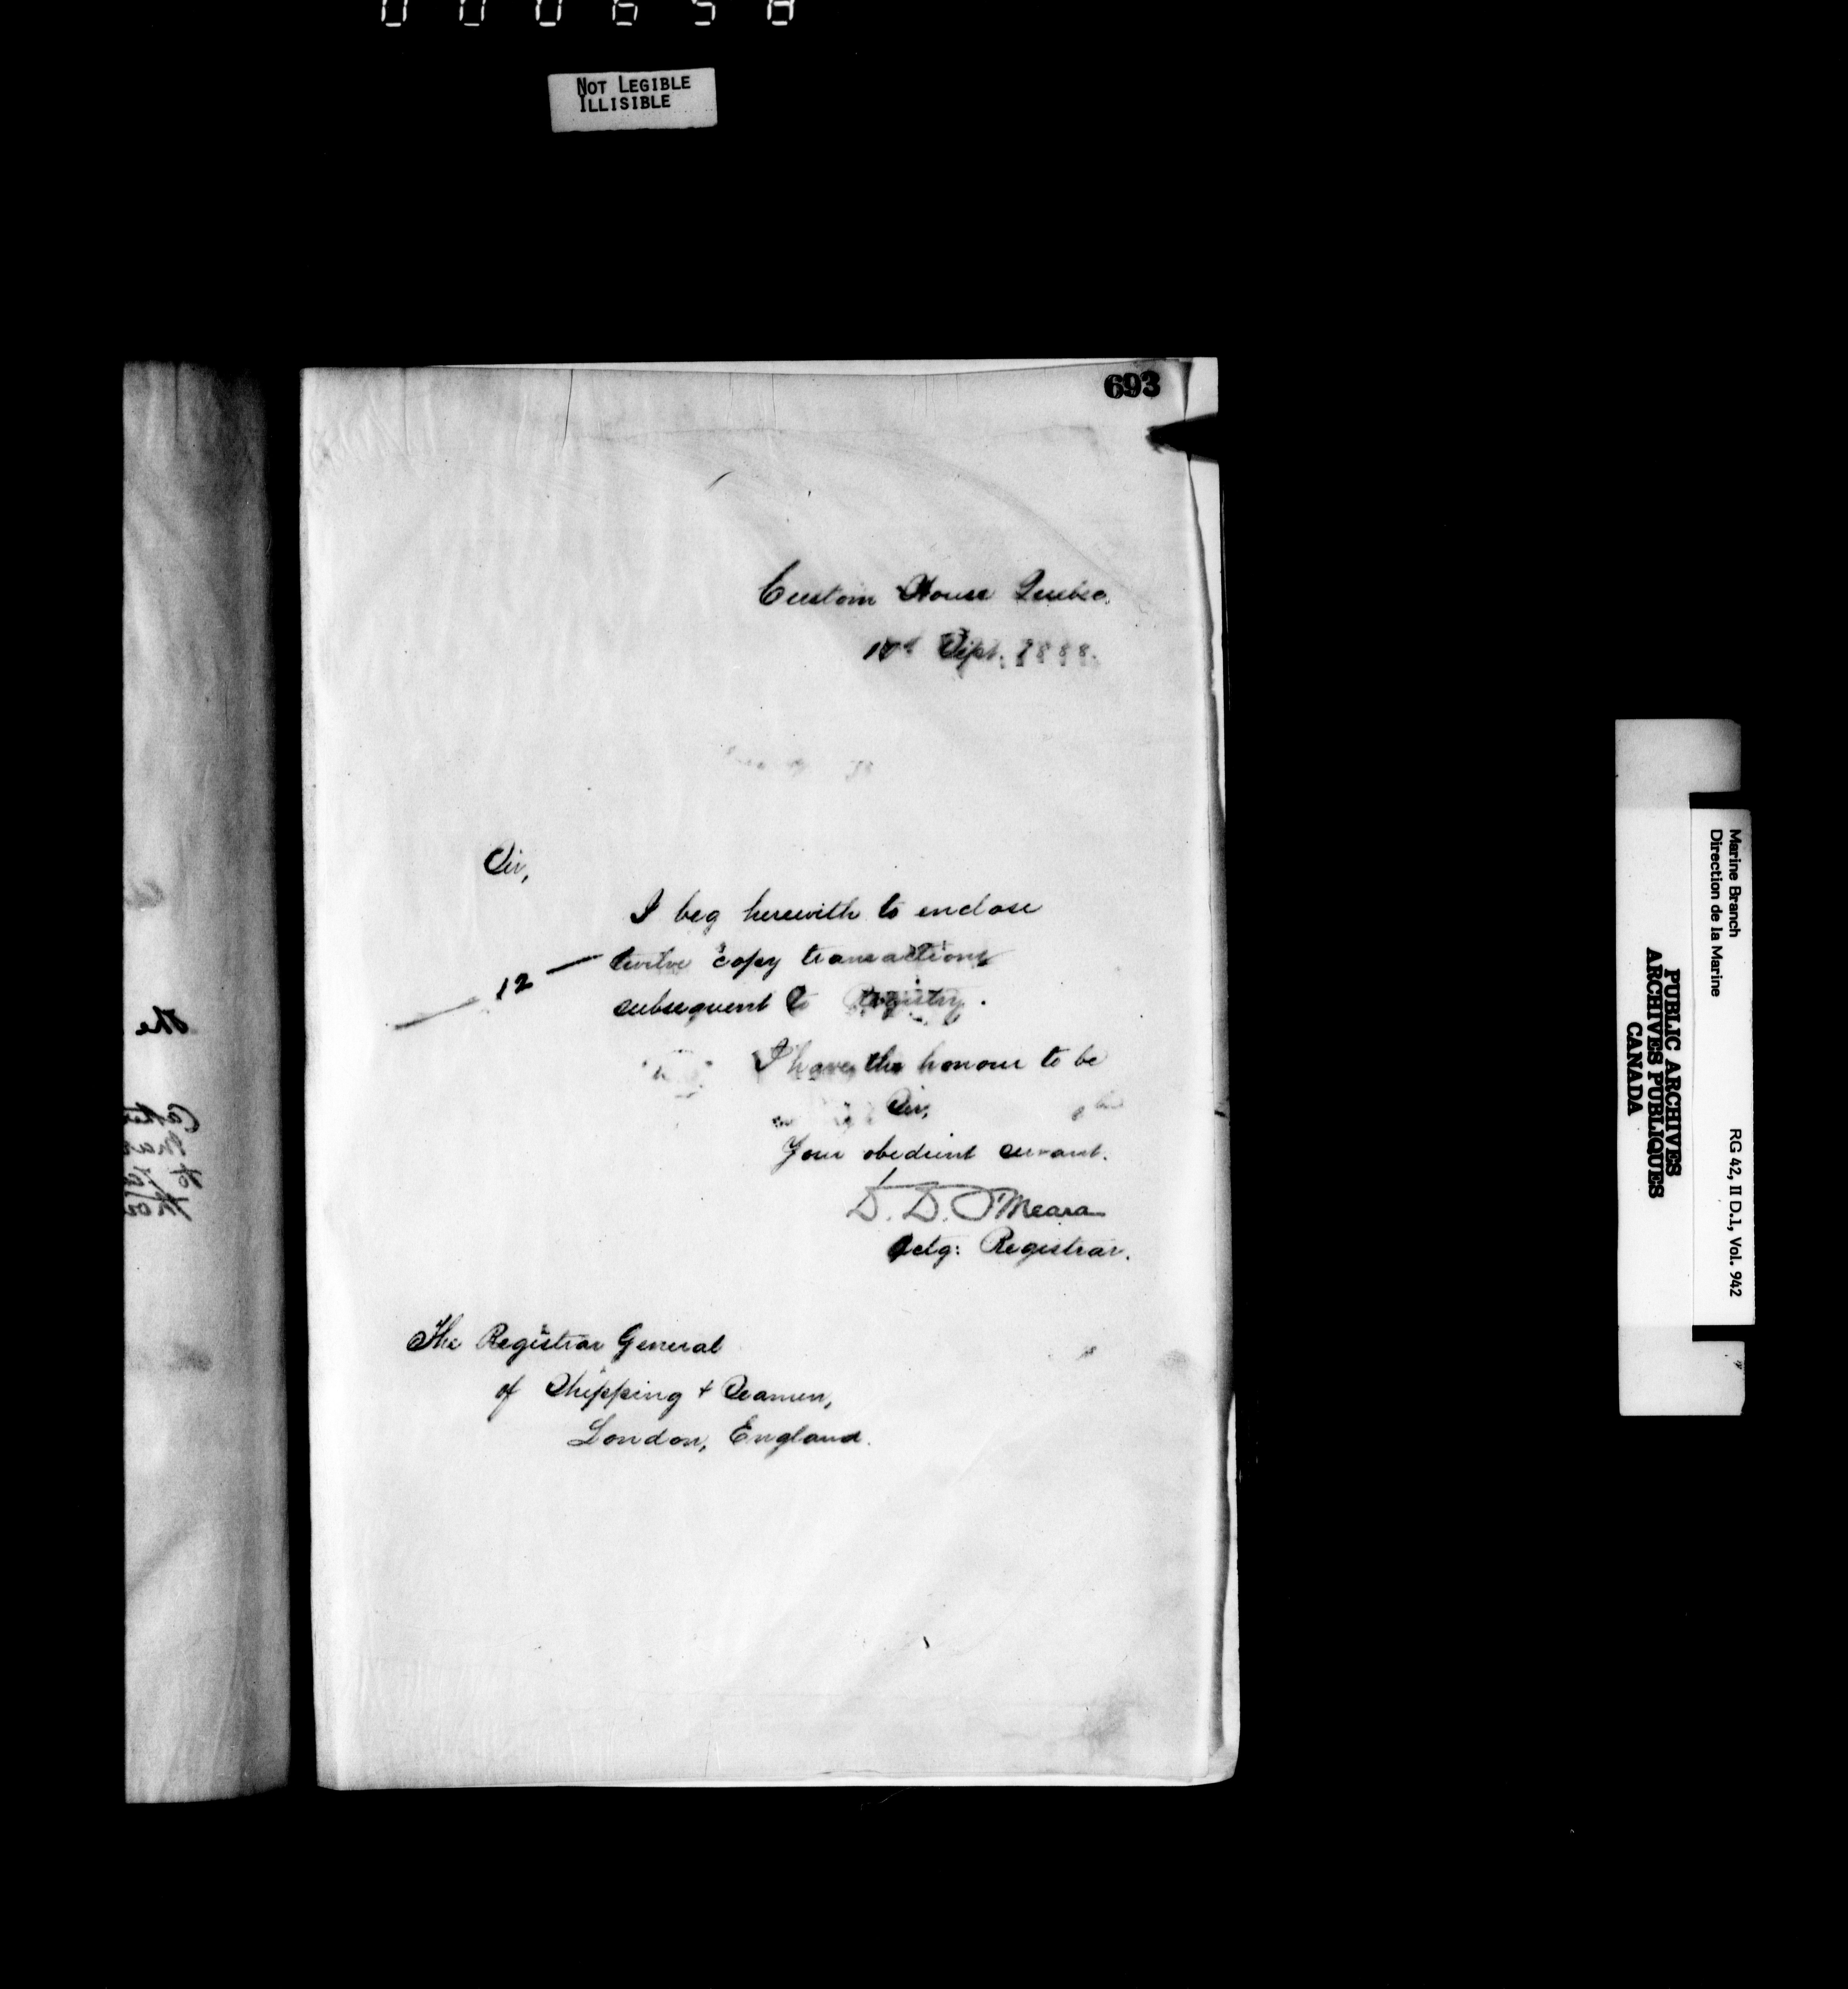 000658
NOT LEGIBLE
ILLISIBLE
693
Custom House Quebec.
Sept. 1888.
Sir,
I beg herewith to enclose
12
twelve copy transactions
subsequent to Registry.
I have the honour to be
Sir,
Your obedient servant.
D. D. O'Meara
Actg: Registrar.
The Registrar General
of Shipping + Seamen,
London, England.
the
Marine Branch
Direction de la Marine
RG 42, II D.1, Vol. 942
PUBLIC ARCHIVES
ARCHIVES PUBLIQUES
CANADA